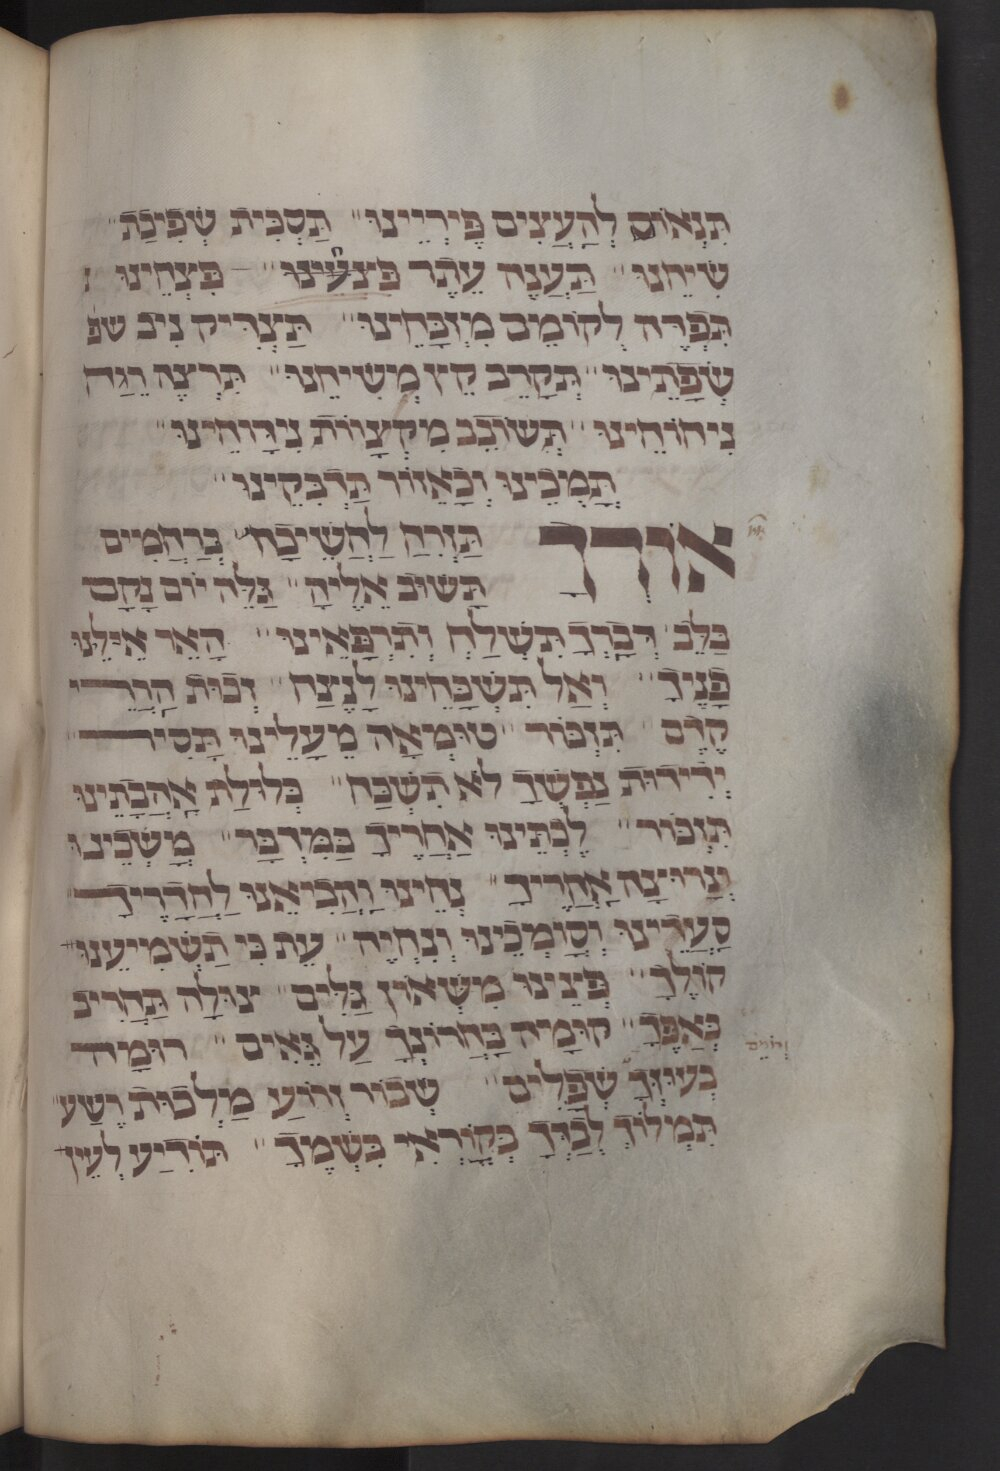 תִּנְאוֹם לְהַעֲצִים פִּירְיֵינוּ״ תַּסְכִּית שְׂפִיכַת״
שִׂיחֵנוּ״ תַּעֲנֶה עֵתֶר פִּצְעֵינוּ״ פִּצְחֵינוּ
תִּפְרֶה לְקוֹמֵם מִזְבָּחֵינוּ״ תַּצְדִּיק נִיב שפ
שְׂפָתֵינוּ״ תְּקָרֵב קֵץ מְשִׁיחֵנוּ״ תִּרְצֶה רֵגַח
נִיחוֹחֵינוּ״ תְּשׁוֹבֵב מִקְצָווֹת נִידָּוחֵינוּ״
תָּמְכֵינוּ וְכָאֵזוֹר תַּדְבִּקֵינוּ״
אוֹרְךָ תַּזְרִחַ לַחֲשֵׁיכָה״ בְּרַחֲמִים
תָּשׁוּב אֵלֶיהָ״ גַּלֵּה יוֹם נָקָם
בַּלֵּב דְּבָרְךָ תִּשְׁלַח וְתִרְפָּאֵינוּ״ הָאֵר אֵילֵינוּ
פָּנֶיךָ״ וְאַל תִּשְׁכָּחֵינוּ לָנֶצַח״ זְכוּת הֲרֲרֵי
קֶדֶם תִּזְכּוֹר״ טוּמְאָה מֵעָלֵינוּ תָּסִיר״
יְדִידוּת נַפְשְׁךָ לֹא תִשְׁכַּח״ כְּלוּלַת אַהֲבָתֵינוּ
תִּזְכּוֹר״ לֶכְתֵּינוּ אַחֲרֶיךָ בַּמִּדְבָּר״ מָשְׁכֵינוּ
וְנָרוּצָה אַחֲרֶיךָ״ נְחֵינוּ וַהֲבִיאֵנוּ לַחֲדָרֶיךָ״
סַעֲדֵינוּ וְסָוֹמְכֵינוּ וְנִחְיֶה״ עֵת כִּי תַשְׁמִיעֵנוּ״
קוֹלֶךָ״ פְּצֵינוּ מִשְּׁאוֹן גַּלִּים״ צוּלָה תַּחֲרִיב
בְּאַפֶּךָ״ קוּמָה בַּחֲרוֹנְךָ עַל גֵּאִים״ רוּמָה
וְרוֹמֵם
בְּעֻוּזְּךָ שְׁפָלִים״ שְׁבוֹר זְרוֹעַ מַלְכוּת רֶשַׁע״
תִּמְלוֹךְ לְבַדְּךָ בְּקָוֹרְאֵי בִּשְׁמֶךָ״ תּוֹדִיעַ לְעֵין